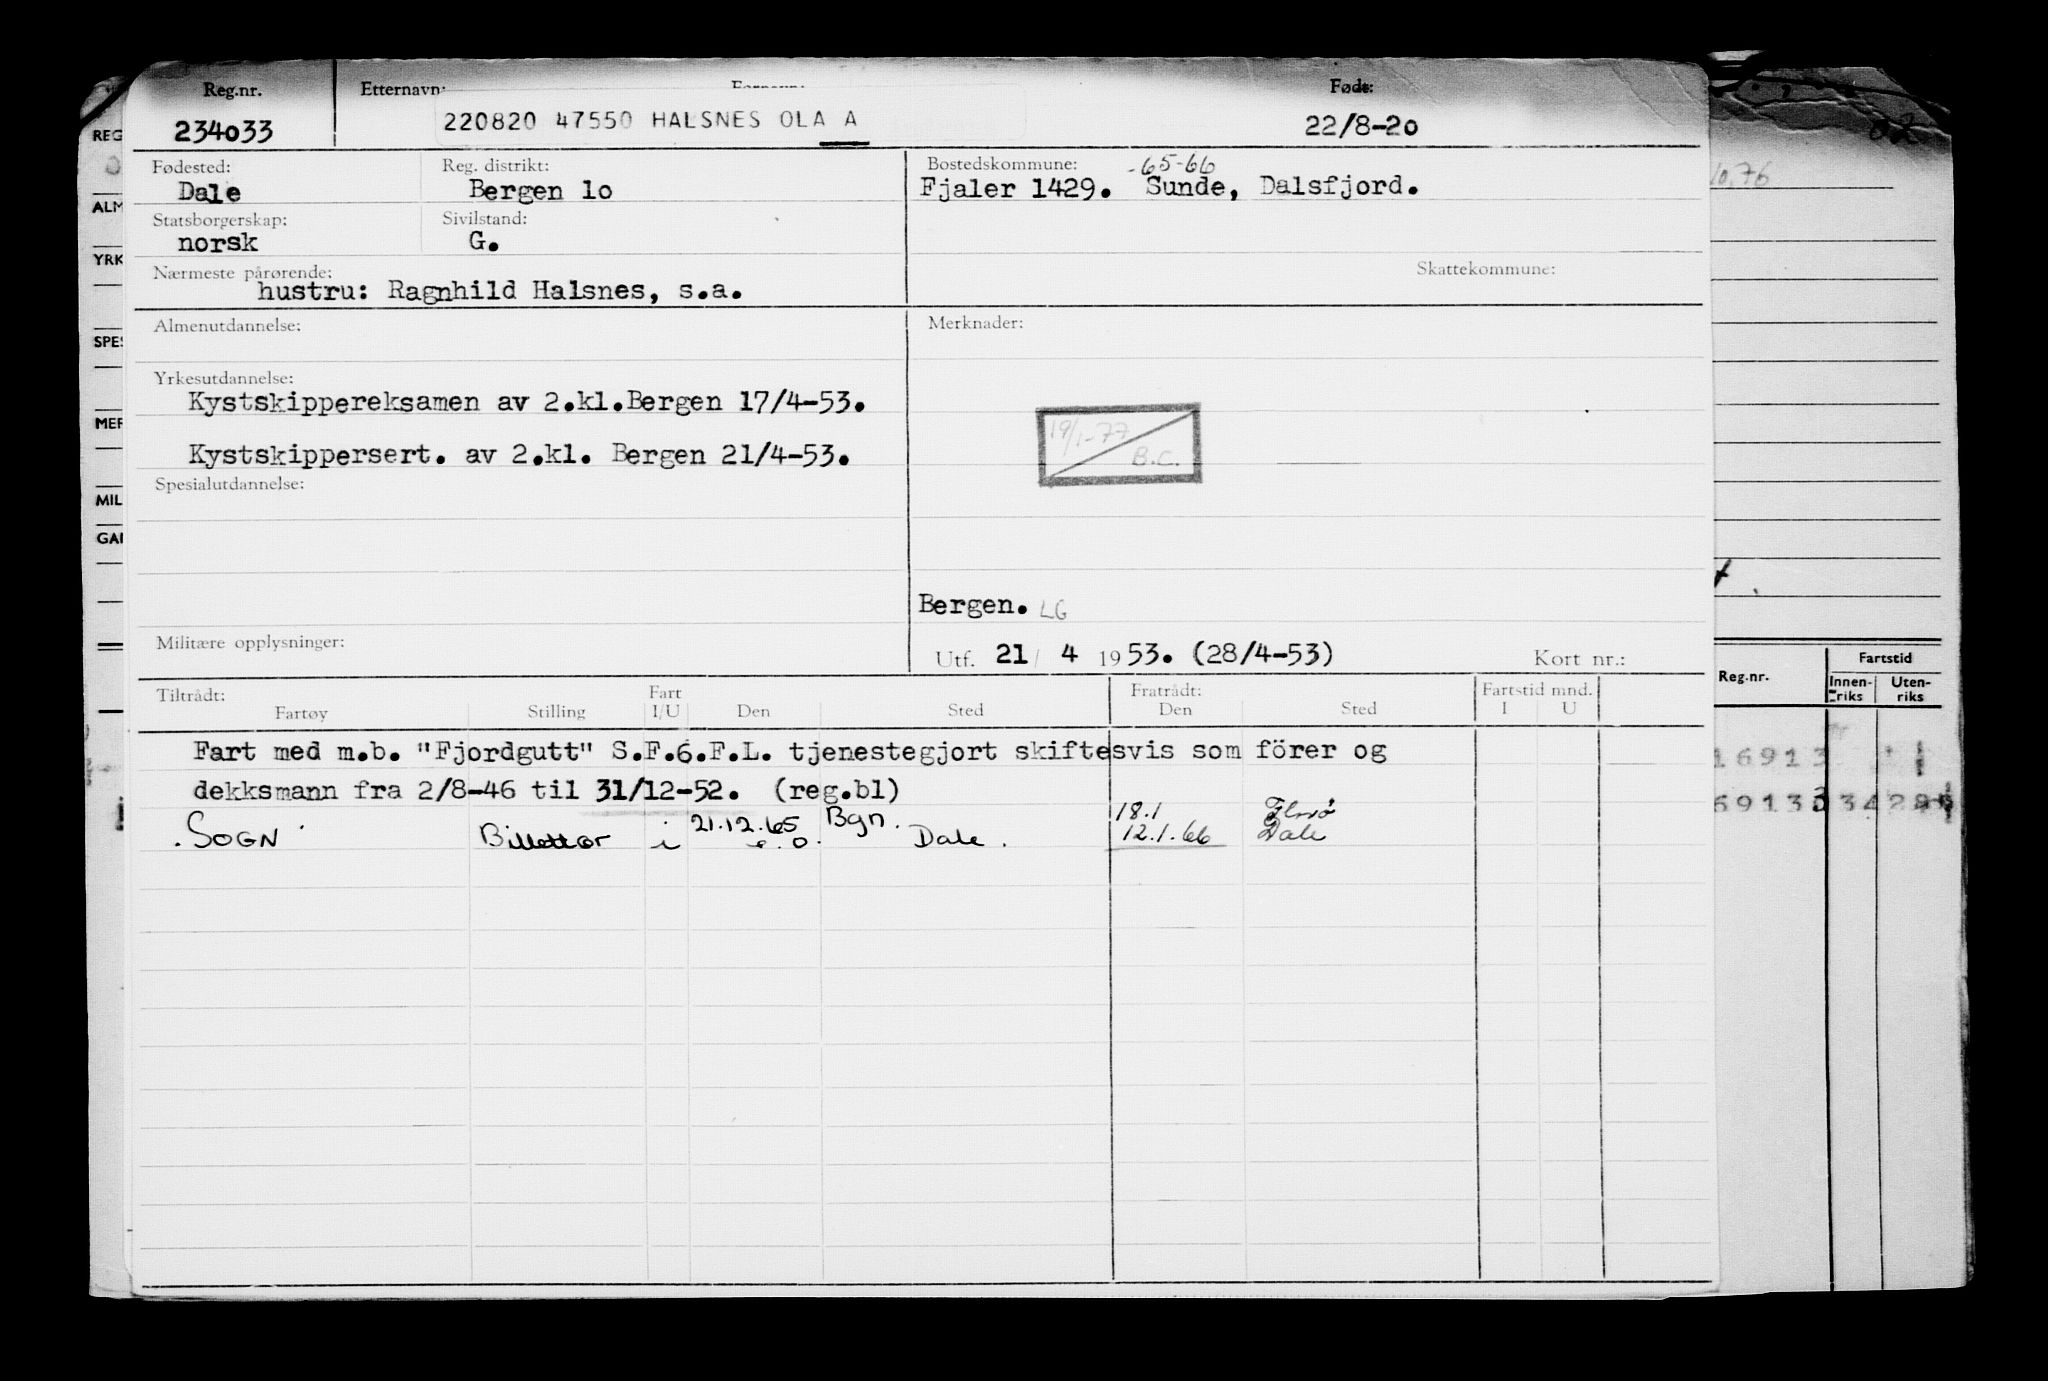 Reg.nr. Etternavn: Født:
234033 220820 47550 HALSNES OLA A 22/8-20
Fødested: Reg. distrikt: Bostedskommune: -65-66
Dale Bergen 10 Fjaler 1429. Sunde, Dalsfjord.
Statsborgerskap: Sivilstand:
norsk G.
Nærmeste pårørende: Skattekommune:
hustru: Ragnhild Halsnes, s.a.
Almenutdannelse: Merknader:
Yrkesutdannelse:
Kystskippereksamen av 2.kl.Bergen 17/4-53.
19/1-77
Kystskippersert. av 2.kl. Bergen 21/4-53. B.C.
Spesialutdannelse:
Bergen. LG
Militære opplysninger:
Utf. 21/ 4 1953. (28/4-53) Kort nr.:
Tiltrådt: Fart Fratrådt: Fartstid mnd.
Fartøy Stilling I/U Den Sted Den Sted I U
Fart med m.b. "Fjordgutt" S.F.6.F.L. tjenestegjort skiftesvis som förer og
dekksmann fra 2/8-46 til 31/12-52. (reg.bl)
21.12.65 Bgn. 18.1
SOGN Billettør i Dale. 12.1.66 Dale
REG
ALM
YRK
SPES
MER
MIL
GAR
02
10.76
Reg.nr. Fartstid
Innen-riks Uten-riks
16913